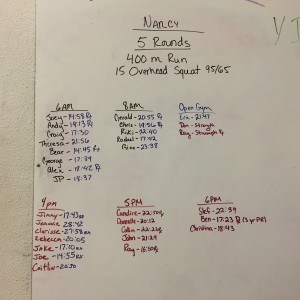 Nancy
5 Rounds
400 m Run
15 Overhead Squat 95/65
6AM
Joey - 14:58 Rx
Andy - 19:13 Rx
Craig - 17:30
Theresa - 21:56
Bear - 14:45 Rx
George - 17:39
Alex - 18:42 Rx
JP - 18:37
8AM
Gerald - 20:55 Rx
Chris - 19:56 Rx
Riki - 22:40
17:42
Gina - 23:38
Open Gym
Liz - 21:47
Dan - Strength
Ray - Strength
4pm
Jinny - 17:43
28:42
Clarisse - 27:58
Rebecca - 20:05
Jake - 17:10
Joe - 14:55 Rx
Caitlin - 20:30
5PM
Candice - 22:50
Danielle - 20:12
Colin - 22:22
John - 21:29
Ray - 16:50
6PM
Stef - 22:39
Ben - 17:23 (3 yr PR)
Christina - 18:43
YI